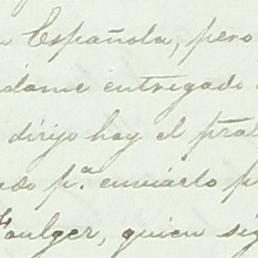 Española, pero
dame entregado
dirijo hoy el
pª enviarlo
Foulger, quien